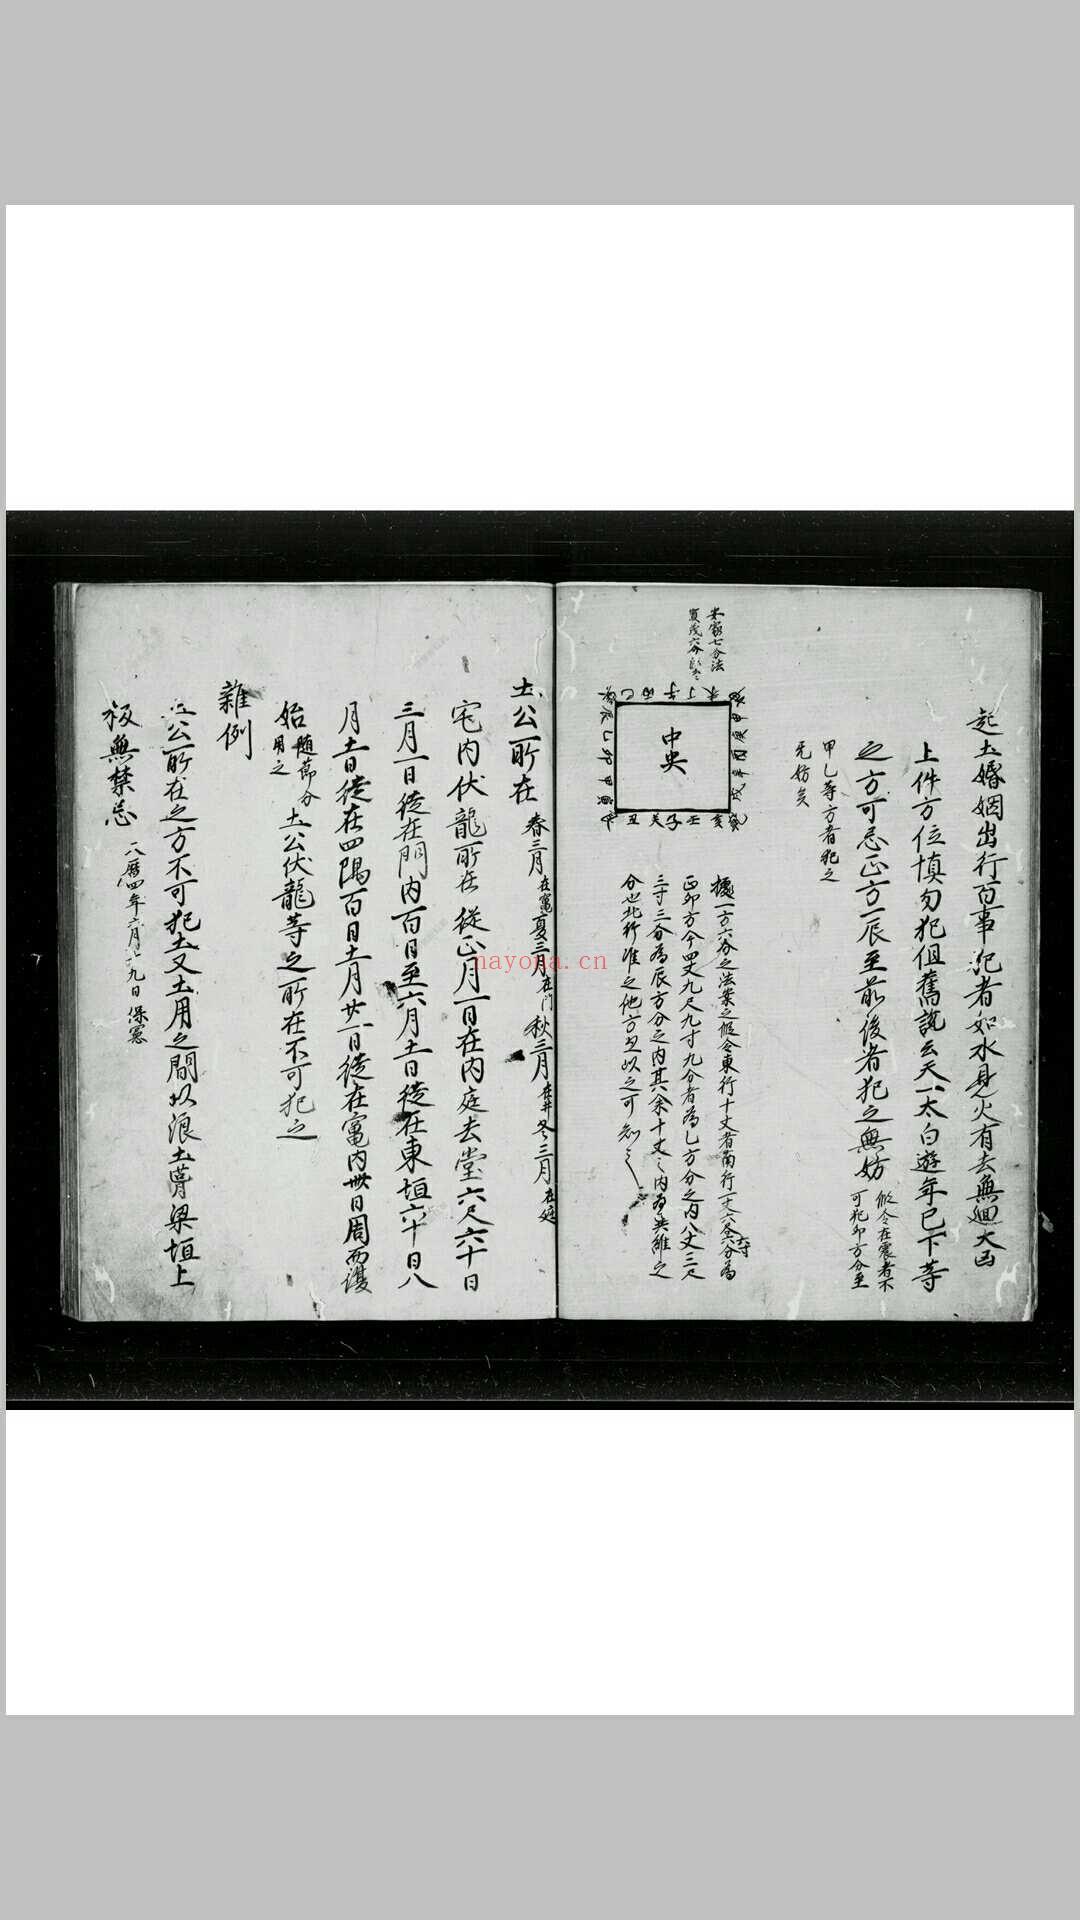 起土婚姻出行百事犯者如水見火有去無迴大凶
上件方位慎勿犯但舊説云天一太白遊年已下等
之方可忌正方一辰至前後者犯之無妨 假令在震者不
可犯卯方分至
甲乙等方者犯之
无妨矣
安家七分法
中央
巽巳丙午丁未坤申庚酉辛戌乾亥壬子癸丑艮寅甲卯乙辰
據一方六分之法案之假令東行十丈者南行一丈六尺六寸六分為
正卯方今四丈九尺九寸九分者為乙方分之内八丈三尺
三寸三分為辰方分之内其余十丈之内為巽維之
分也北行准之他方又以之可知之
土公所在 春三月在竈夏三月在門秋三月在井冬三月在庭
宅内伏龍所在 從正月一日在内庭去堂六尺六十日
三月一日徙在門内百日至六月十一日徙在東垣六十日八
月十一日徙在四隅百日十一月廿一日徙在竈内卌日周而復
始 隨節分
用之 土公伏龍等之所在不可犯之
雜例
土公所在之方不可犯土又土用之間以浪土塗梁垣上
板無禁忌 天曆四年六月十九日保憲
nayona.cn